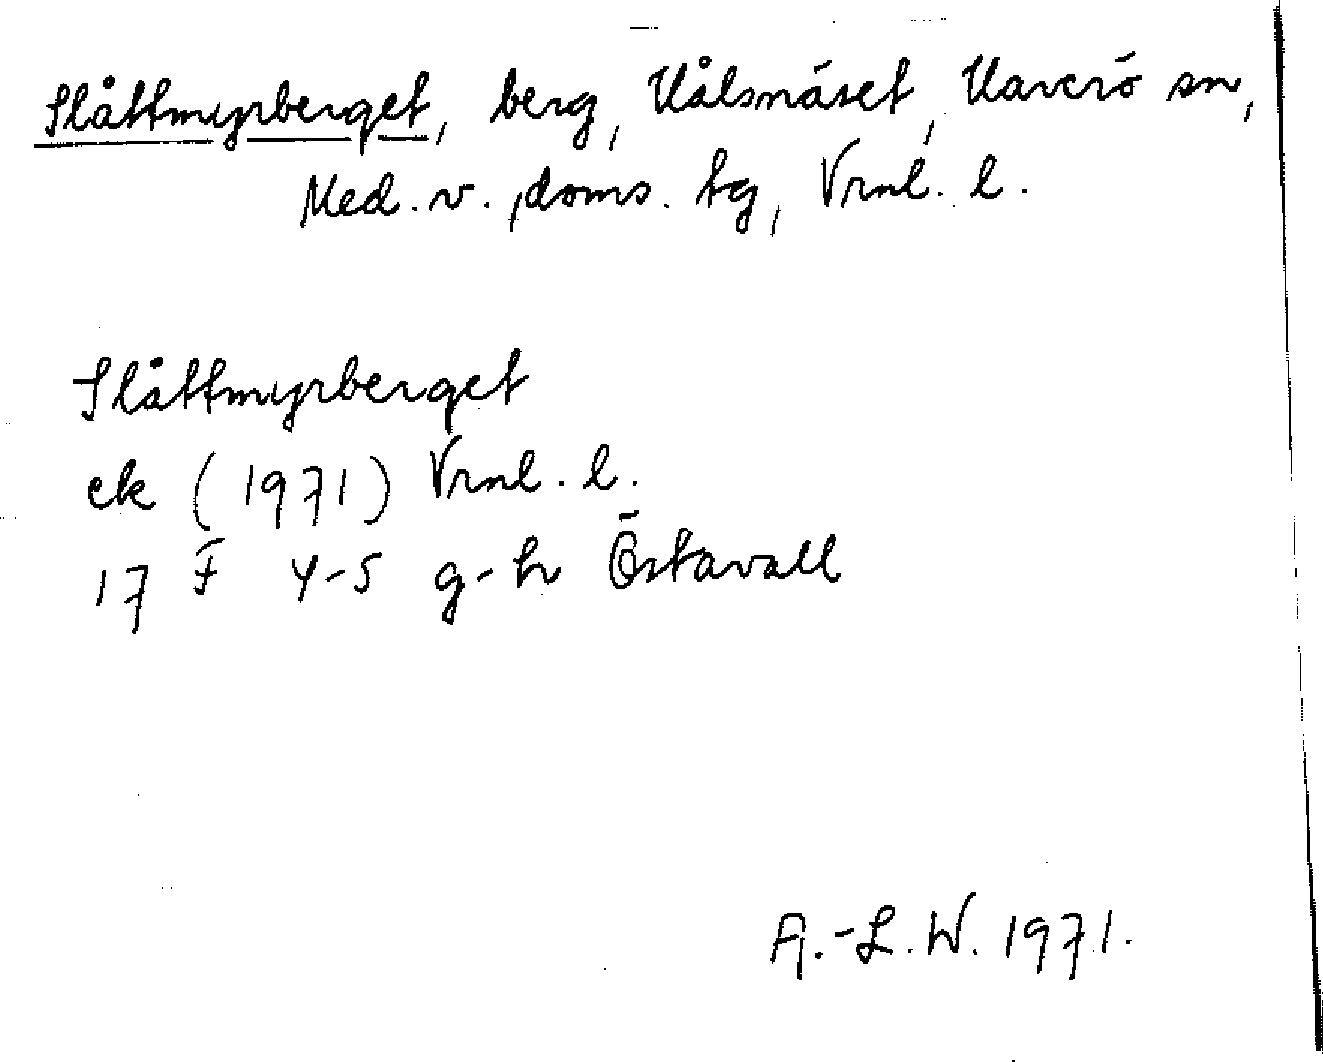 Slåttmyrberget, berg, Kålsnäset, Haverö sn,
Med. v. doms. tg, Vrnl. l.
Slåttmyrberget
ek (1971) Vrnl. l.
17 F 4-5 g-h Östavall
A.-L. W. 1971.